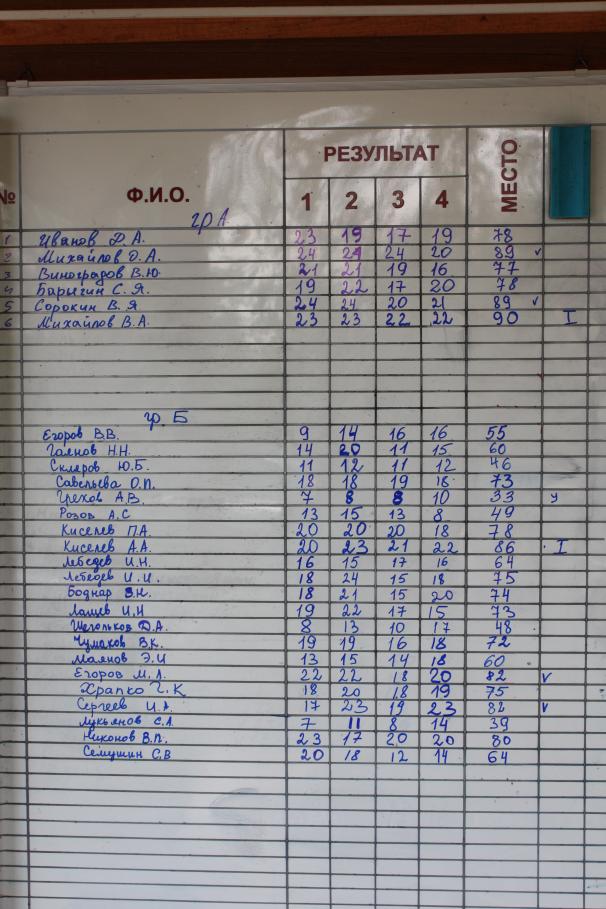 № Ф.И.О. РЕЗУЛЬТАТ МЕСТО
1 2 3 4
гр А
1 Иванов Д.А. 23 19 17 19 78
2 Михайлов О.А. 24 21 24 20 89 v
3 Виноградов В.Ю. 21 21 19 16 77
4 Барыгин С.Я. 19 22 17 20 78
5 Сорокин В.Я 24 24 20 21 89 v
6 Михайлов В.А. 23 23 22 22 90 I
гр. Б
Егоров В.В. 9 14 16 16 55
Гаянов Н.Н. 14 20 11 15 60
Скляров Ю.Б. 11 12 11 12 46
Савельева О.П. 18 18 19 18 73
Грехов А.В. 7 8 8 10 33 у
Розов А.С 13 15 13 8 49
Киселев П.А. 20 20 20 18 78
Киселев А.А. 20 23 21 22 86 I
Лебедев И.Н. 16 15 17 16 64
Лебедев И.И. 18 24 15 18 75
Боднар В.Н. 18 21 15 20 74
Лащев И.И 19 22 17 15 73
Щегольков Д.А. 8 13 10 17 48
Чумаков В.К. 19 19 16 18 72
Маянов Э.И 13 15 14 18 60
Егоров М.А. 22 22 18 20 82 v
Храпко Г.К 18 20 18 19 75
Сергеев И.А. 17 23 19 23 82 v
Лукьянов С.А. 7 11 8 14 39
Никонов В.П. 23 17 20 20 80
Семушин С.В 20 18 12 14 64